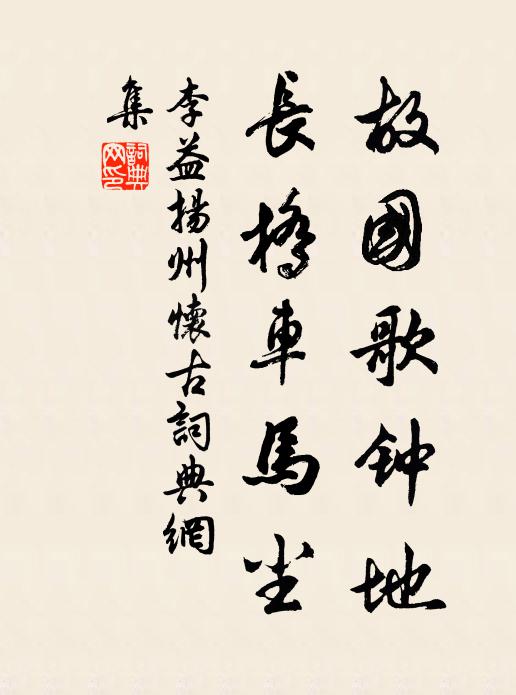 故國歌钟地
長橋車馬尘
李益揚州懷古詞典網
集
詞典
网印